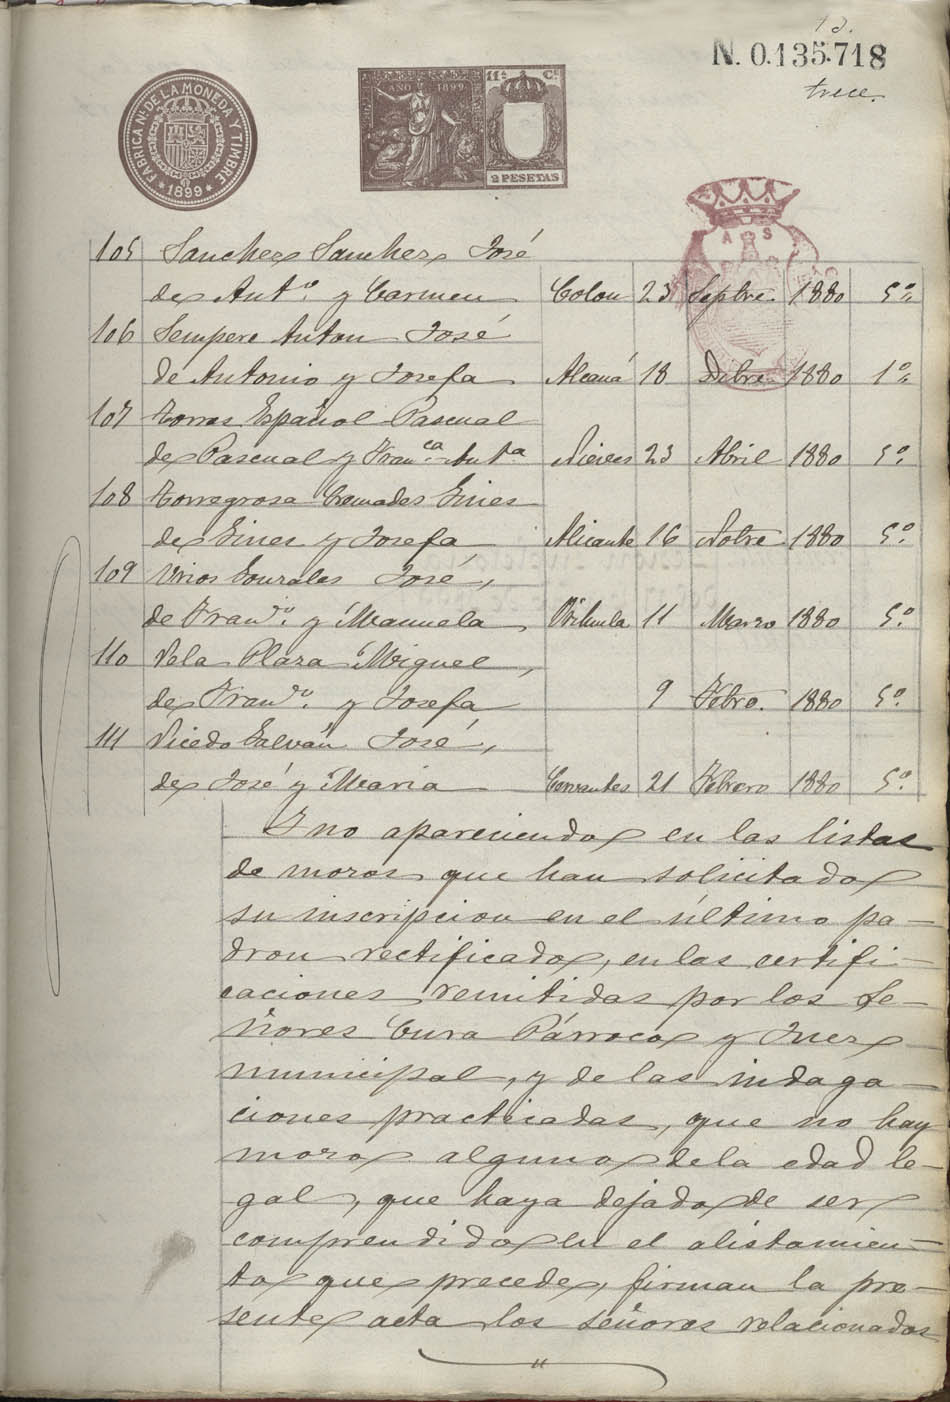 13.
N. 0.135.718
trece.
FABRICA NAL DE LA MONEDA Y TIMBRE
1899
AÑO 1899
11ª Cᵉ
2 PESETAS
A S
105 Sanchez Sanchez José
de Antº. y Carmen Colon 23 Septre. 1880 5º
106 Sempere Anton José
de Antonio y Josefa Alcaná 18 Dibre. 1880 1º
107 Torres Español Pascual
de Pascual y Francª. Antª Nieves 23 Abril 1880 5º
108 Torregrosa Cremades Gines
de Gines y Josefa Alicante 16 Nobre 1880 5º
109 Urios Gonzales José,
de Frandº. y Manuela Orihuela 11 Marzo 1880 5º
110 Vela Plaza Miguel,
de Frandº. y Josefa 9 Febro. 1880 5º
111 Vicedo Galvañ José,
de José y Maria Cervantes 21 Febrero 1880 5º
Y no apareciendo en las listas
de mozos que han solicitado
su inscripcion en el último pa-
dron rectificado, en las certifi-
caciones remitidas por los Se-
ñores Cura Párroco y Juez
municipal, y de las indaga-
ciones practicadas, que no hay
mozo alguno de la edad le-
gal, que haya dejado de ser
comprendido en el alistamien-
to que precede, firman la pre-
sente acta los señores relacionados